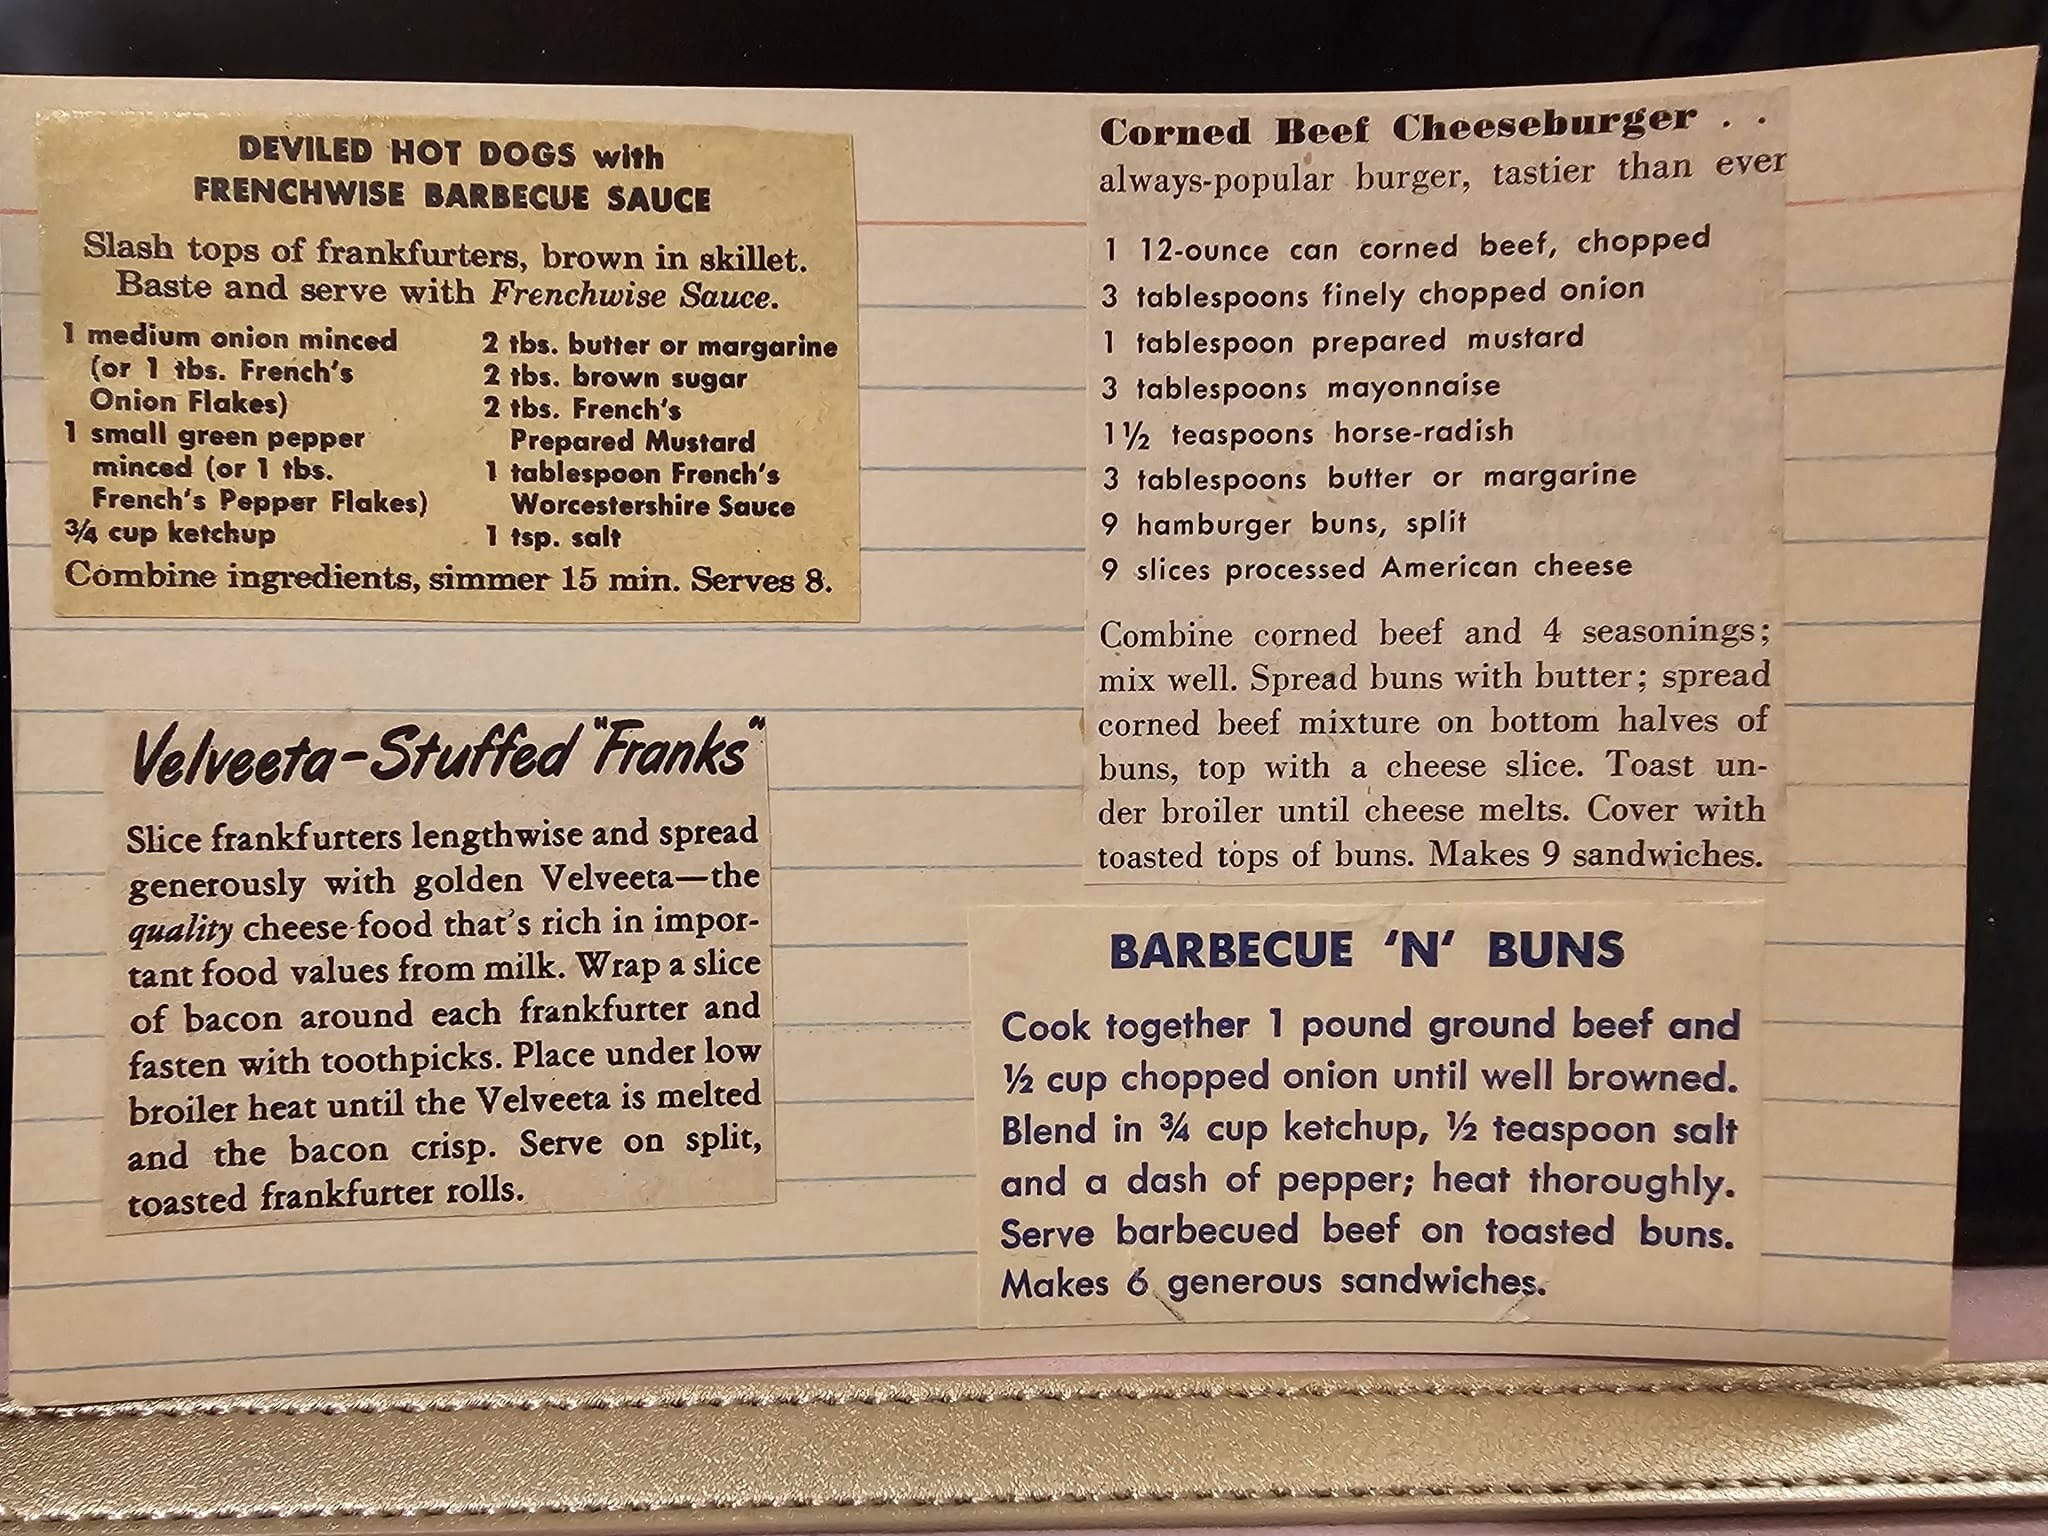 DEVILED HOT DOGS with
FRENCHWISE BARBECUE SAUCE
Slash tops of frankfurters, brown in skillet.
Baste and serve with Frenchwise Sauce.
1 medium onion minced
(or 1 tbs. French's
Onion Flakes)
1 small green pepper
minced (or 1 tbs.
French's Pepper Flakes)
¾ cup ketchup
2 tbs. butter or margarine
2 tbs. brown sugar
2 tbs. French's
Prepared Mustard
1 tablespoon French's
Worcestershire Sauce
1 tsp. salt
Combine ingredients, simmer 15 min. Serves 8.
Velveeta-Stuffed "Franks"
Slice frankfurters lengthwise and spread
generously with golden Velveeta—the
quality cheese food that's rich in impor-
tant food values from milk. Wrap a slice
of bacon around each frankfurter and
fasten with toothpicks. Place under low
broiler heat until the Velveeta is melted
and the bacon crisp. Serve on split,
toasted frankfurter rolls.
Corned Beef Cheeseburger . .
always-popular burger, tastier than ever
1 12-ounce can corned beef, chopped
3 tablespoons finely chopped onion
1 tablespoon prepared mustard
3 tablespoons mayonnaise
1½ teaspoons horse-radish
3 tablespoons butter or margarine
9 hamburger buns, split
9 slices processed American cheese
Combine corned beef and 4 seasonings;
mix well. Spread buns with butter; spread
corned beef mixture on bottom halves of
buns, top with a cheese slice. Toast un-
der broiler until cheese melts. Cover with
toasted tops of buns. Makes 9 sandwiches.
BARBECUE 'N' BUNS
Cook together 1 pound ground beef and
½ cup chopped onion until well browned.
Blend in ¾ cup ketchup, ½ teaspoon salt
and a dash of pepper; heat thoroughly.
Serve barbecued beef on toasted buns.
Makes 6 generous sandwiches.